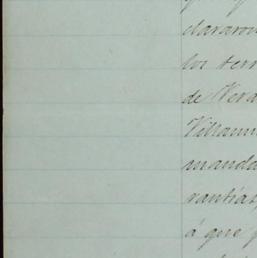 clararon
los terr
de Vera
Villanu
manda
rantias,
á que p